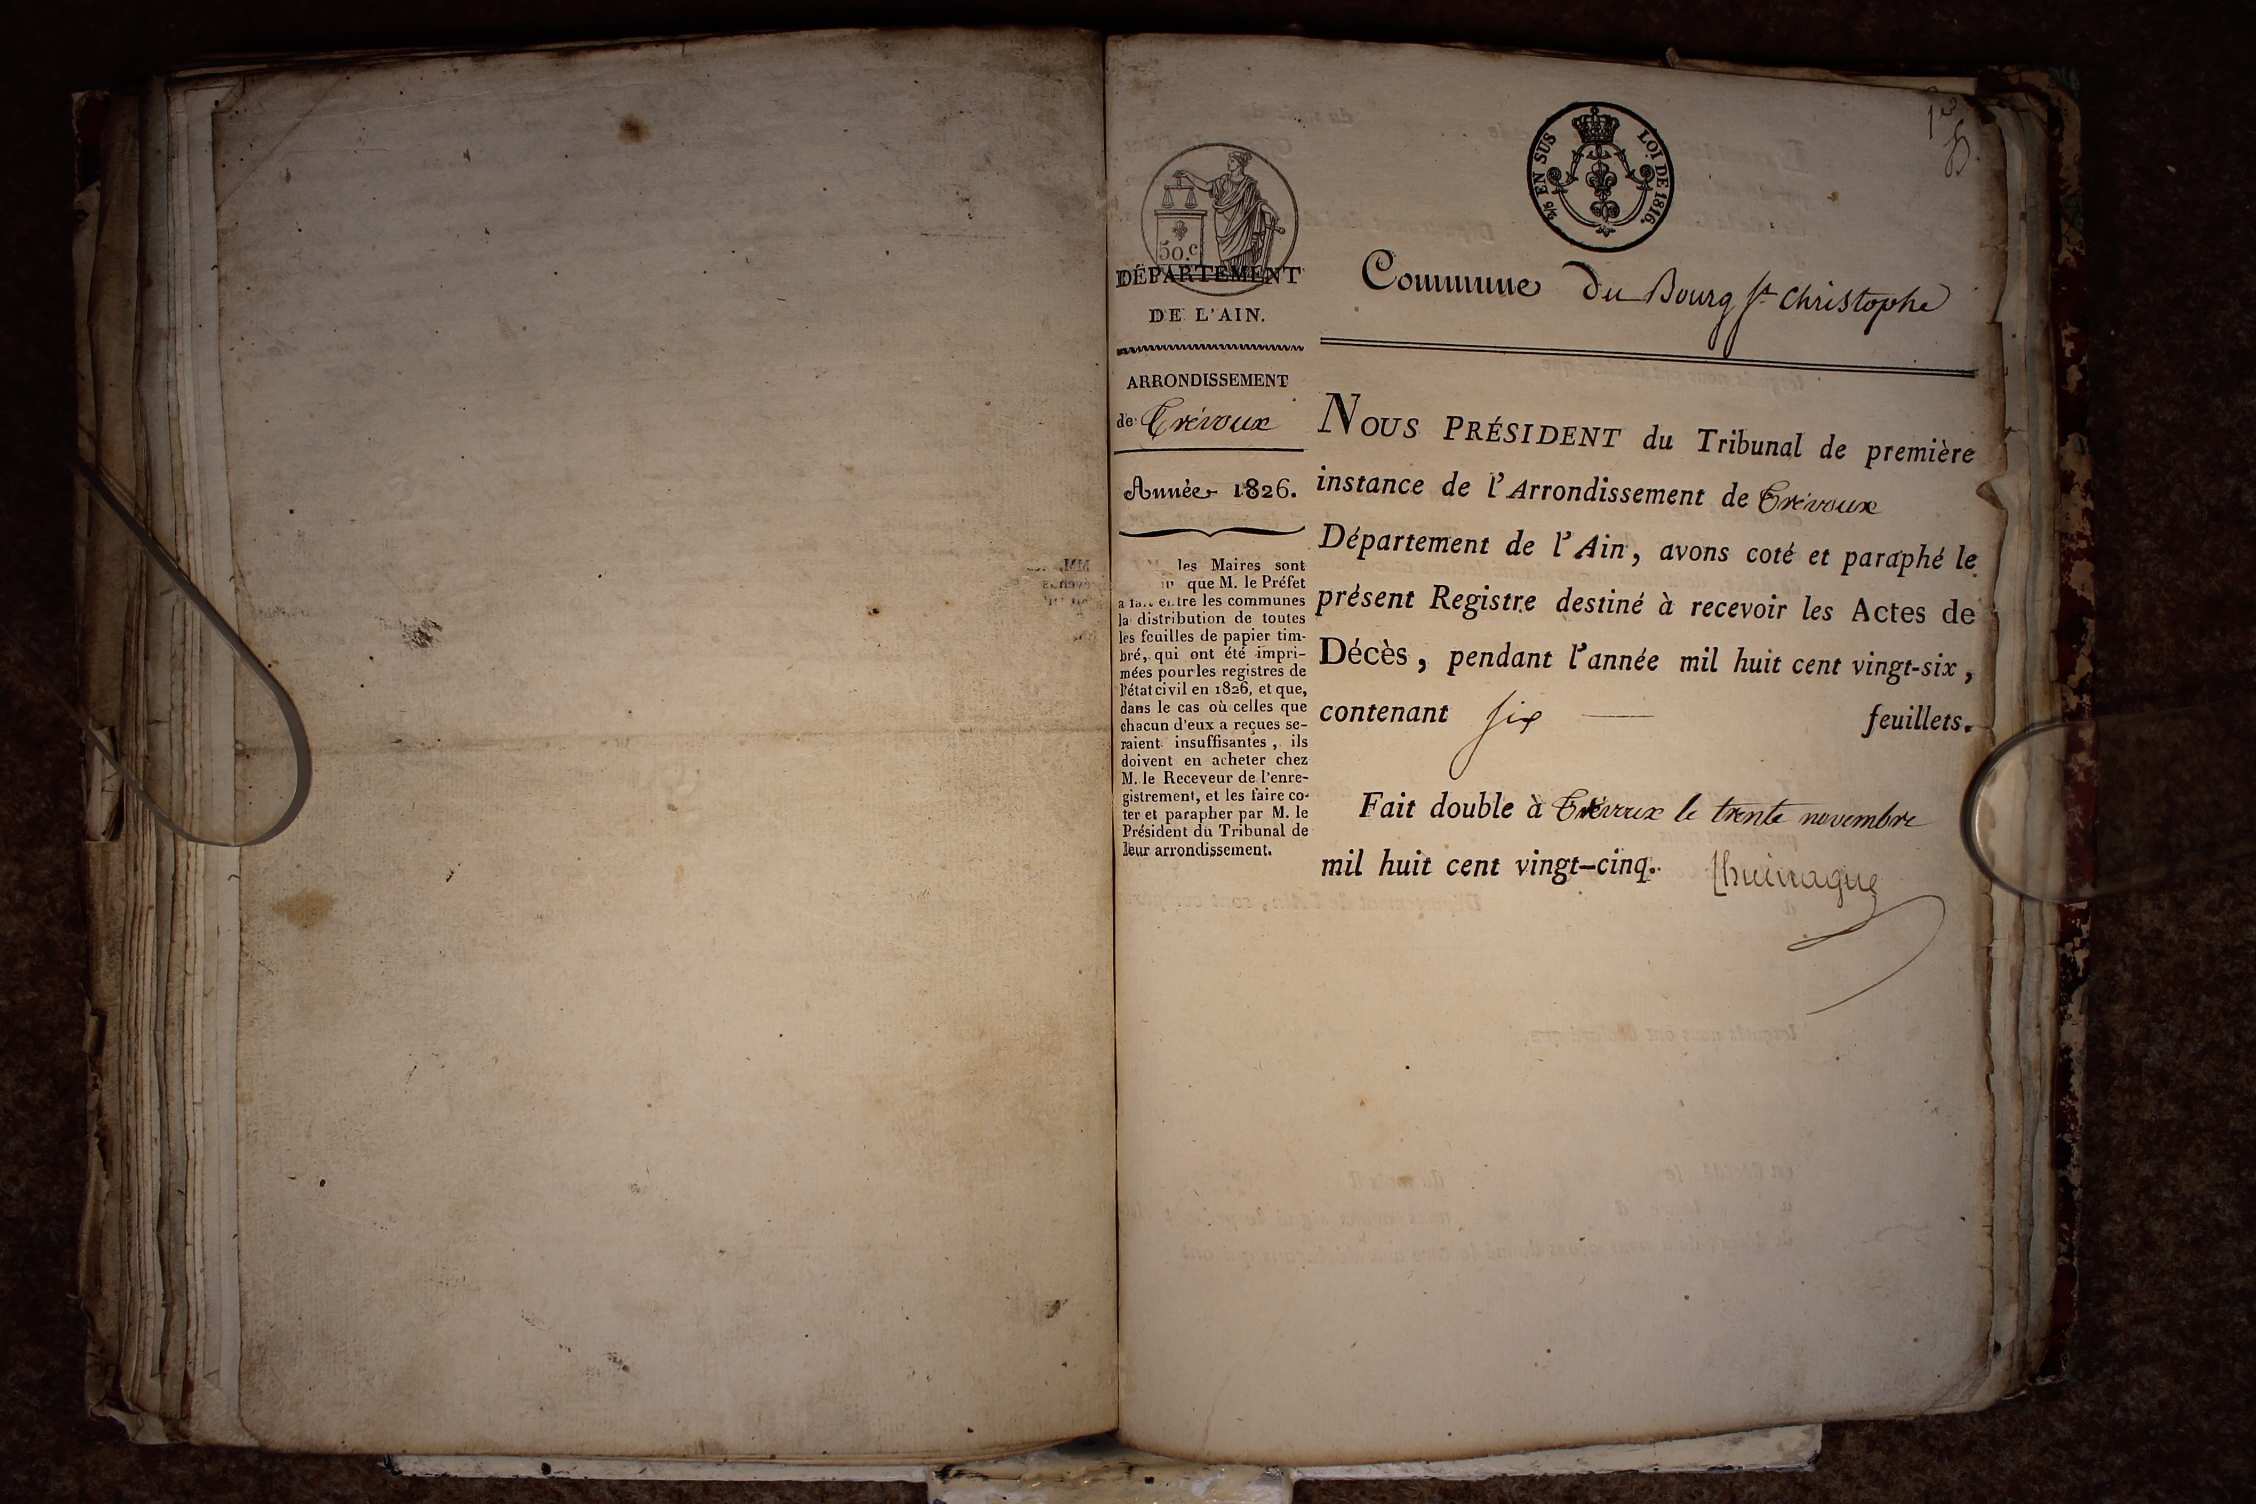 EN SUS LOI DE 1816.
50.c
DÉPARTEMENT
DE L'AIN.
Commune du Bourg St Christophe
ARRONDISSEMENT
de Trévoux
Année 1826.
les Maires sont
que M. le Préfet
a fait entre les communes
la distribution de toutes
les feuilles de papier tim-
bré, qui ont été impri-
mées pour les registres de
l'état civil en 1826, et que,
dans le cas où celles que
chacun d'eux a reçues se-
raient insuffisantes, ils
doivent en acheter chez
M. le Receveur de l'enre-
gistrement, et les faire co-
ter et parapher par M. le
Président du Tribunal de
leur arrondissement.
NOUS PRÉSIDENT du Tribunal de première
instance de l'Arrondissement de Trévoux
Département de l'Ain, avons coté et paraphé le
présent Registre destiné à recevoir les Actes de
Décès, pendant l'année mil huit cent vingt-six,
contenant six feuillets.
Fait double à Trévoux le trente novembre
mil huit cent vingt-cinq.